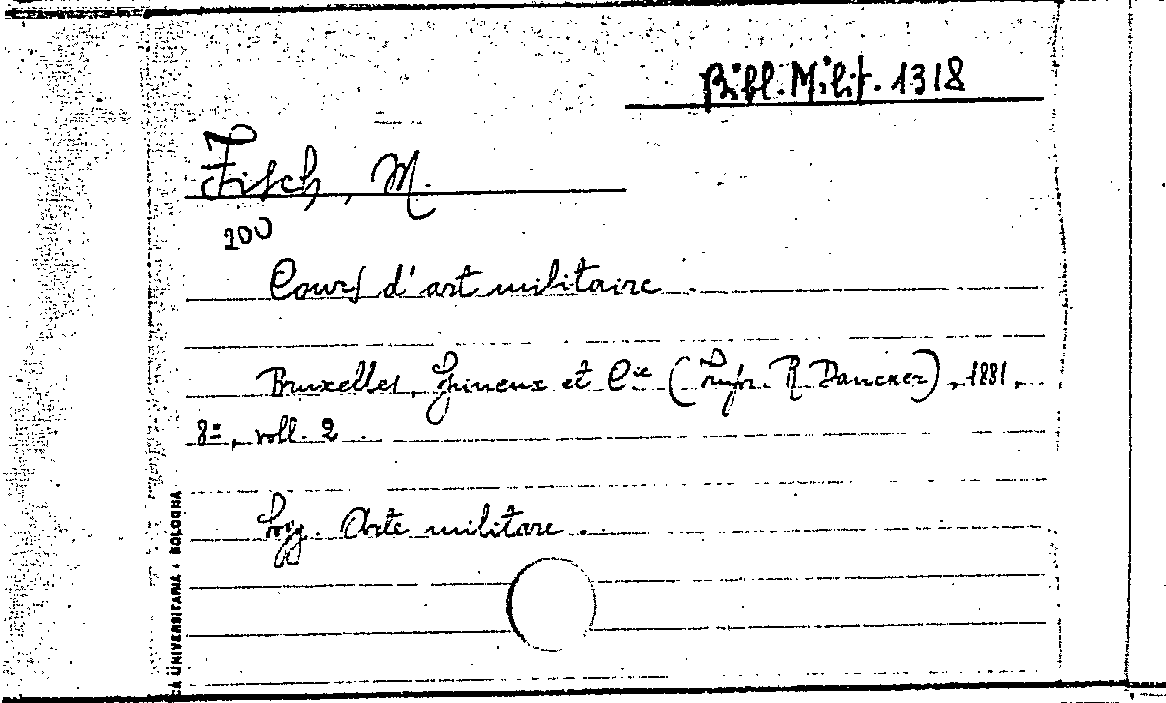 Bibl. Milit. 1318
Fisch, M.
100
Cours d'art militaire.
Bruxelles, et C.ie ( R Dancker), 1881,
8º, voll. 2.
Sogg. Arte militare.
CA UNIVERSITARIA • BOLOGNA